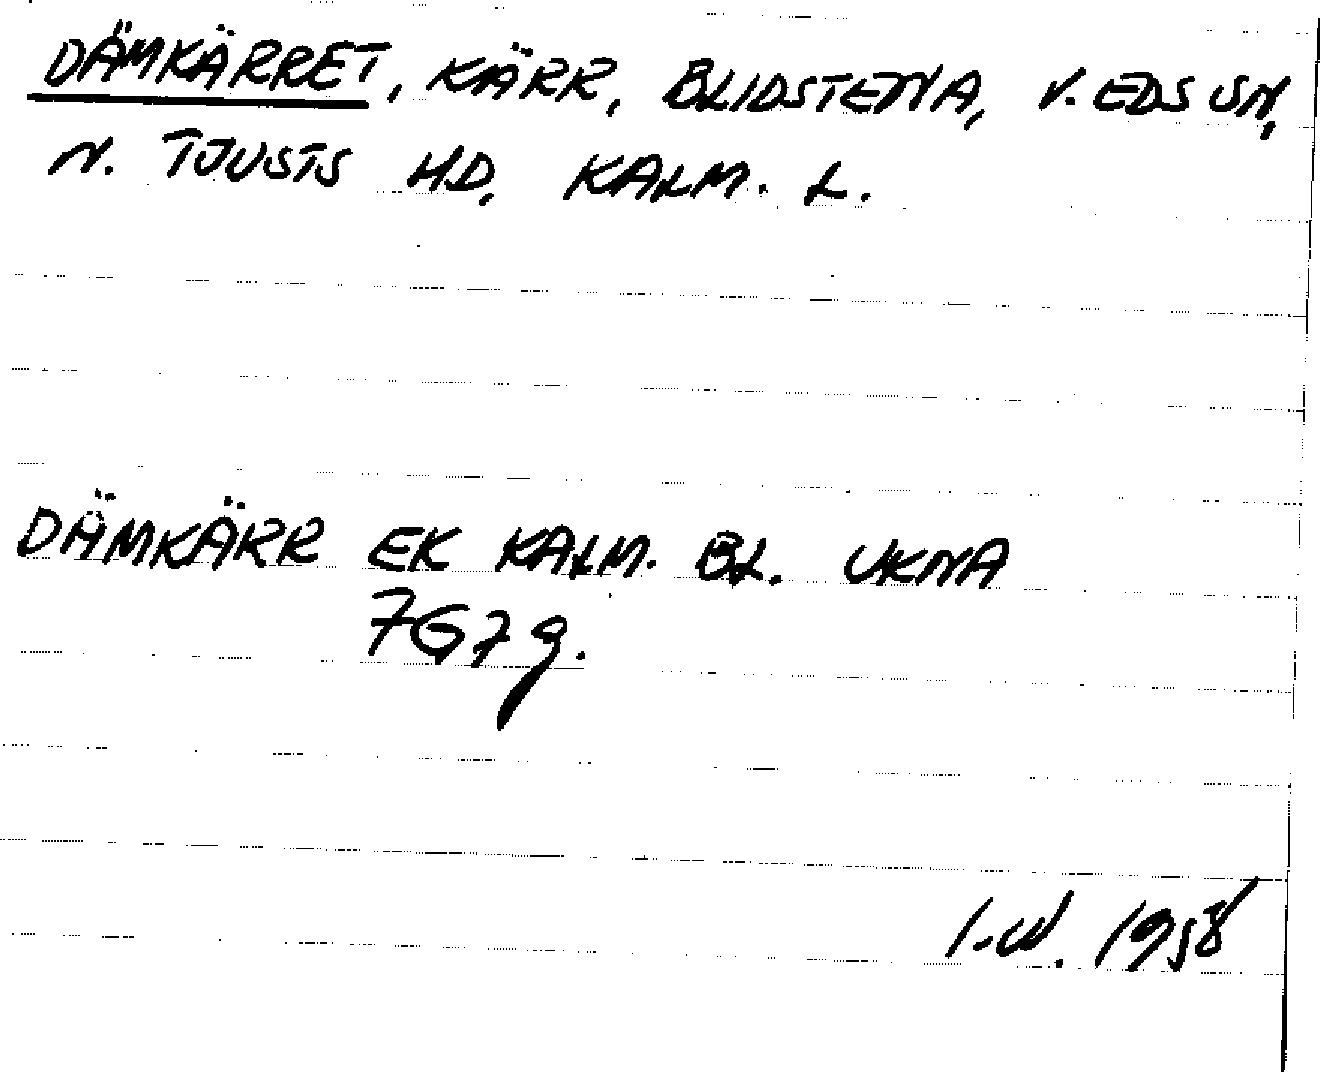 DÄMKÄRRET, KÄRR, BLIDSTENA, V. EDS SN,
N. TJUSTS HD, KALM. L.
DÄMKÄRR EK KALM. BL. UKNA
7G7g.
1958